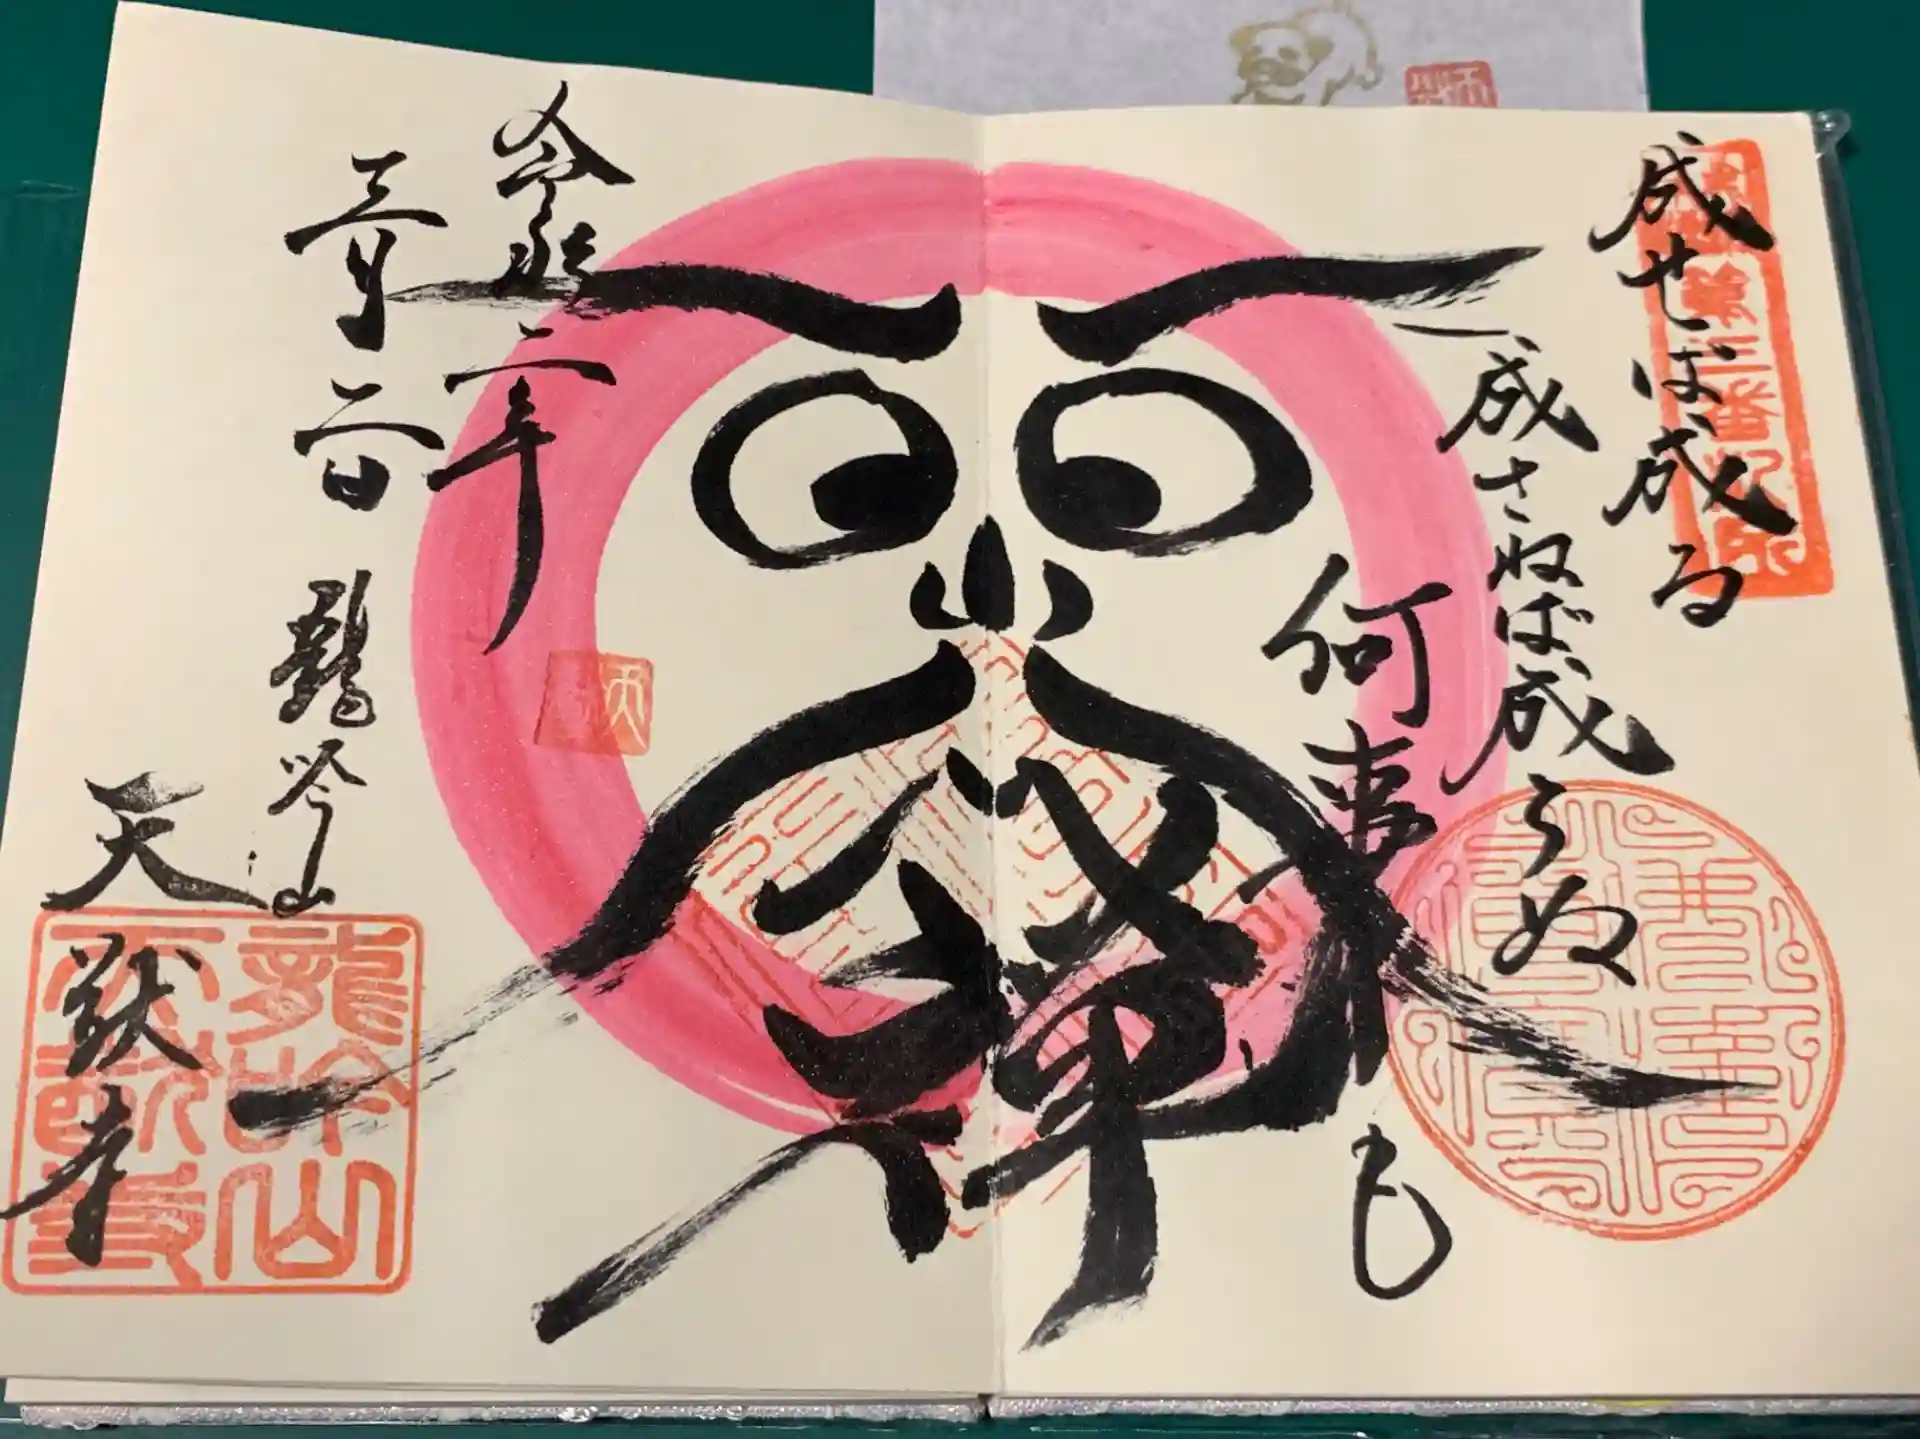 成せば成る
成さねば成らぬ
何事も
禅
令和二年
三月二日 龍吟山
天猷寺
龍吟山
天猷寺